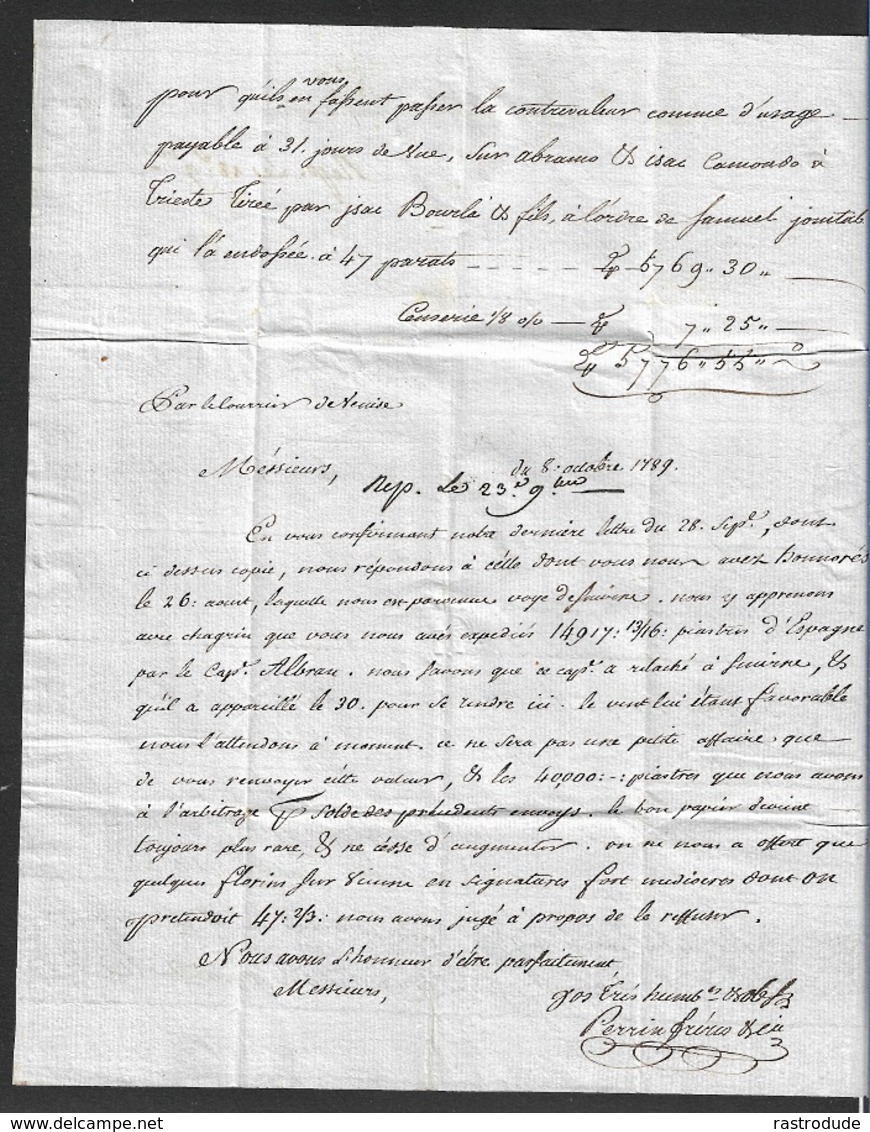 pour qu'ils en vous fassent passer la contrevaleur comme d'usage
payable à 31. jours de vue, sur abramo & isac Camondo à
Trieste Tireé par jsac Bourla & fils, à l'ordre de Samuel jomtab
qui l'a endossée. à 47 parats - - - - - - 5769 " 30 "
Censerie 1/8 o/o — 7 " 25 "
5776 " 55 "
Par le Courrier de Venise
du 8. octobre 1789.
Méssieurs,
Rep. Le 23. 9.bre
En vous confirmant notre dernière lettre du 28. Sep.e, dont
ci dessus copie, nous répondons à célle dont vous nous avez honnorés
le 26: aout, laquelle nous est parvenue voye de Smirne. nous y apprenons
avec chagrin que vous nous avés expediés 14917: 13/16: piastres d'Espagne
par le Cap.e Albran. nous savons que ce cap.e a relaché à Smirne, &
qu'il a appareillé le 30. pour se rendre ici. le vent lui étant favorable
nous l'attendons à moment. ce ne sera pas une petite affaire que
de vous renvoyer cétte valeur, & les 40,000:-: piastres que nous avons
à l'arbitrage p solde des précedents envoys. le bon papier devient
toujours plus rare, & ne césse d'augmenter. on ne nous a offert que
quelques florins sur Vienne en signatures fort mediocres dont on
pretendoit 47: 2/3: nous avons jugé à propos de le reffuser.
Nous avons L'honneur d'être parfaitement
Messieurs,
Vos Trés humb.es & ob.
Perrin fréres & Cie
rastrodude